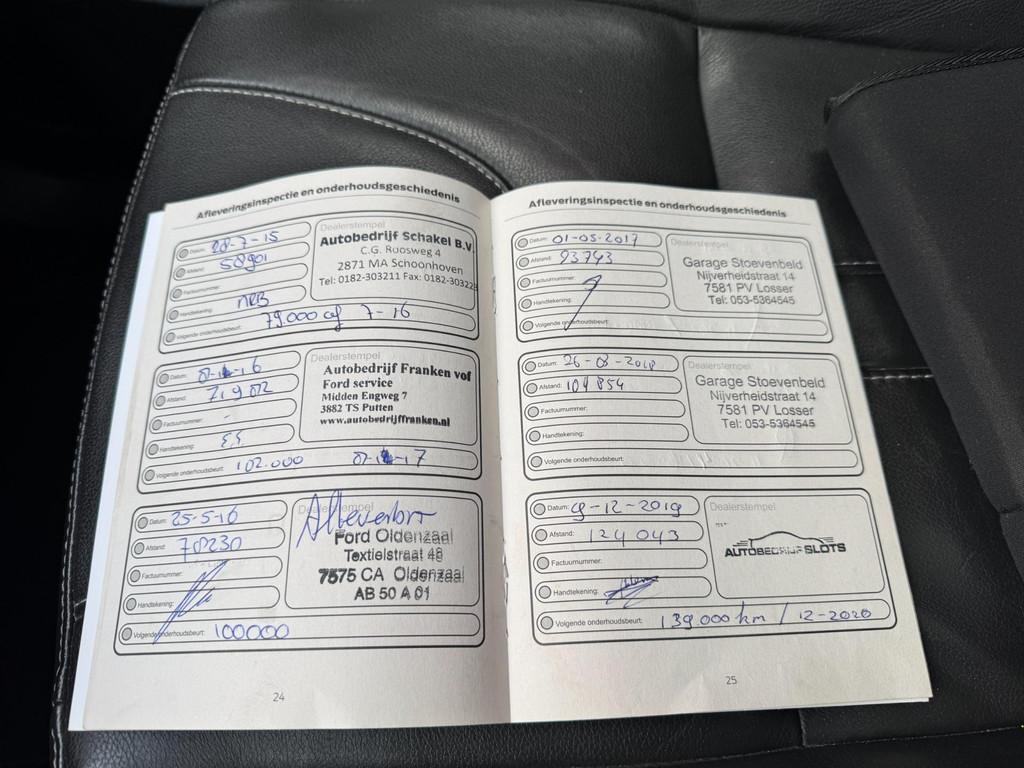 Afleveringsinspectie en onderhoudsgeschiedenis
Datum: 28-7-15
Afstand: 58901
Factuurnummer:
Handtekening: MRB
Volgende onderhoudsbeurt: 79.000 of 7-16
Dealerstempel
Autobedrijf Schakel B.V.
C.G. Roosweg 4
2871 MA Schoonhoven
Tel: 0182-303211 Fax: 0182-30322
Datum:
Afstand:
Factuurnummer: -
Handtekening:
Volgende onderhoudsbeurt: 102.000
Dealerstempel
Autobedrijf Franken vof
Ford service
Midden Engweg 7
3882 TS Putten
www.autobedrijffranken.nl
Datum: 25-5-16
Afstand: 78230
Factuurnummer:
Handtekening:
Volgende onderhoudsbeurt: 100000
Dealerstempel
Ford Oldenzaal
Textielstraat 48
7575 CA Oldenzaal
AB 50 A 01
24
Afleveringsinspectie en onderhoudsgeschiedenis
Datum: 01-05-2017
Afstand: 93743
Factuurnummer:
Handtekening:
Volgende onderhoudsbeurt:
Dealerstempel
Garage Stoevenbeld
Nijverheidstraat 14
7581 PV Losser
Tel: 053-5364545
Datum: 26-08-2018
Afstand: 104854
Factuurnummer:
Handtekening:
Volgende onderhoudsbeurt:
Dealerstempel
Garage Stoevenbeld
Nijverheidstraat 14
7581 PV Losser
Tel: 053-5364545
Datum: 9-12-2019
Afstand: 124043
Factuurnummer:
Handtekening:
Volgende onderhoudsbeurt: 139.000 km / 12-2020
Dealerstempel
AUTOBEDRIJF SLOTS
25